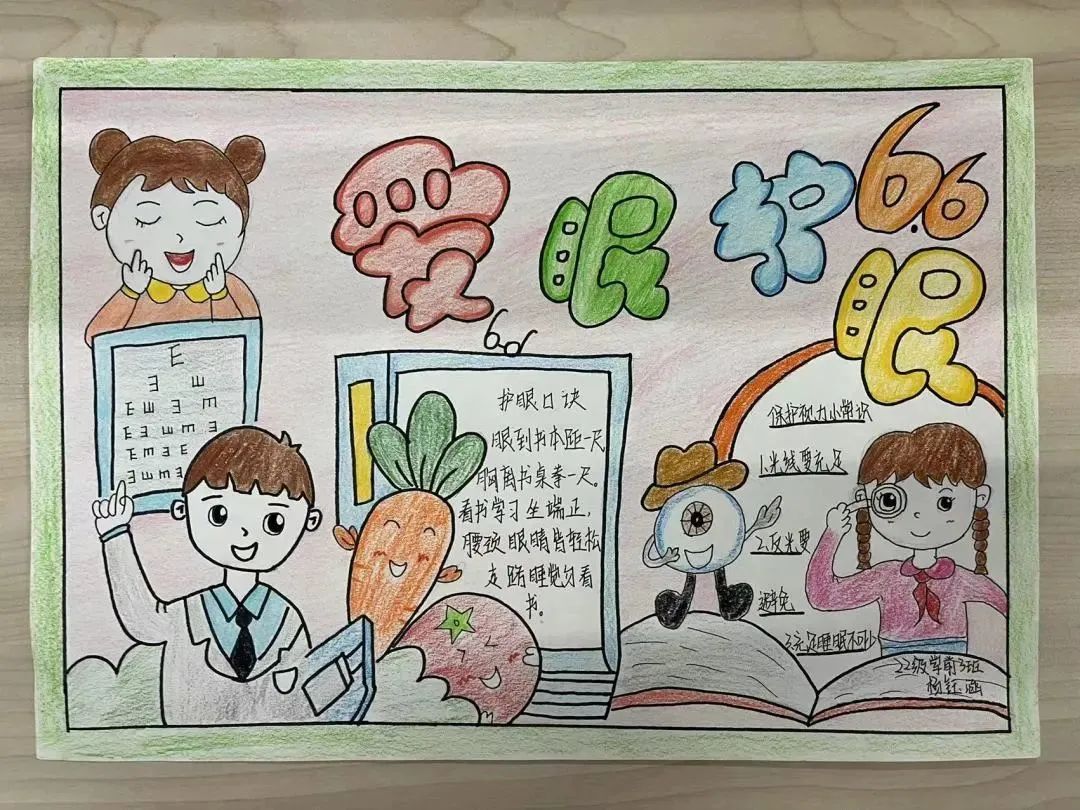 爱眼护眼
6.6
E
6.6
护眼口诀
眼到书本距一尺
胸离书桌一尺。
看书学习坐端正,
腰颈眼睛皆轻松
走路睡觉勿看
书。
保护视力小常识
1.光线要充足
2.反光要
避免
3.充足睡眠不可少
22级学前3班
杨钰涵